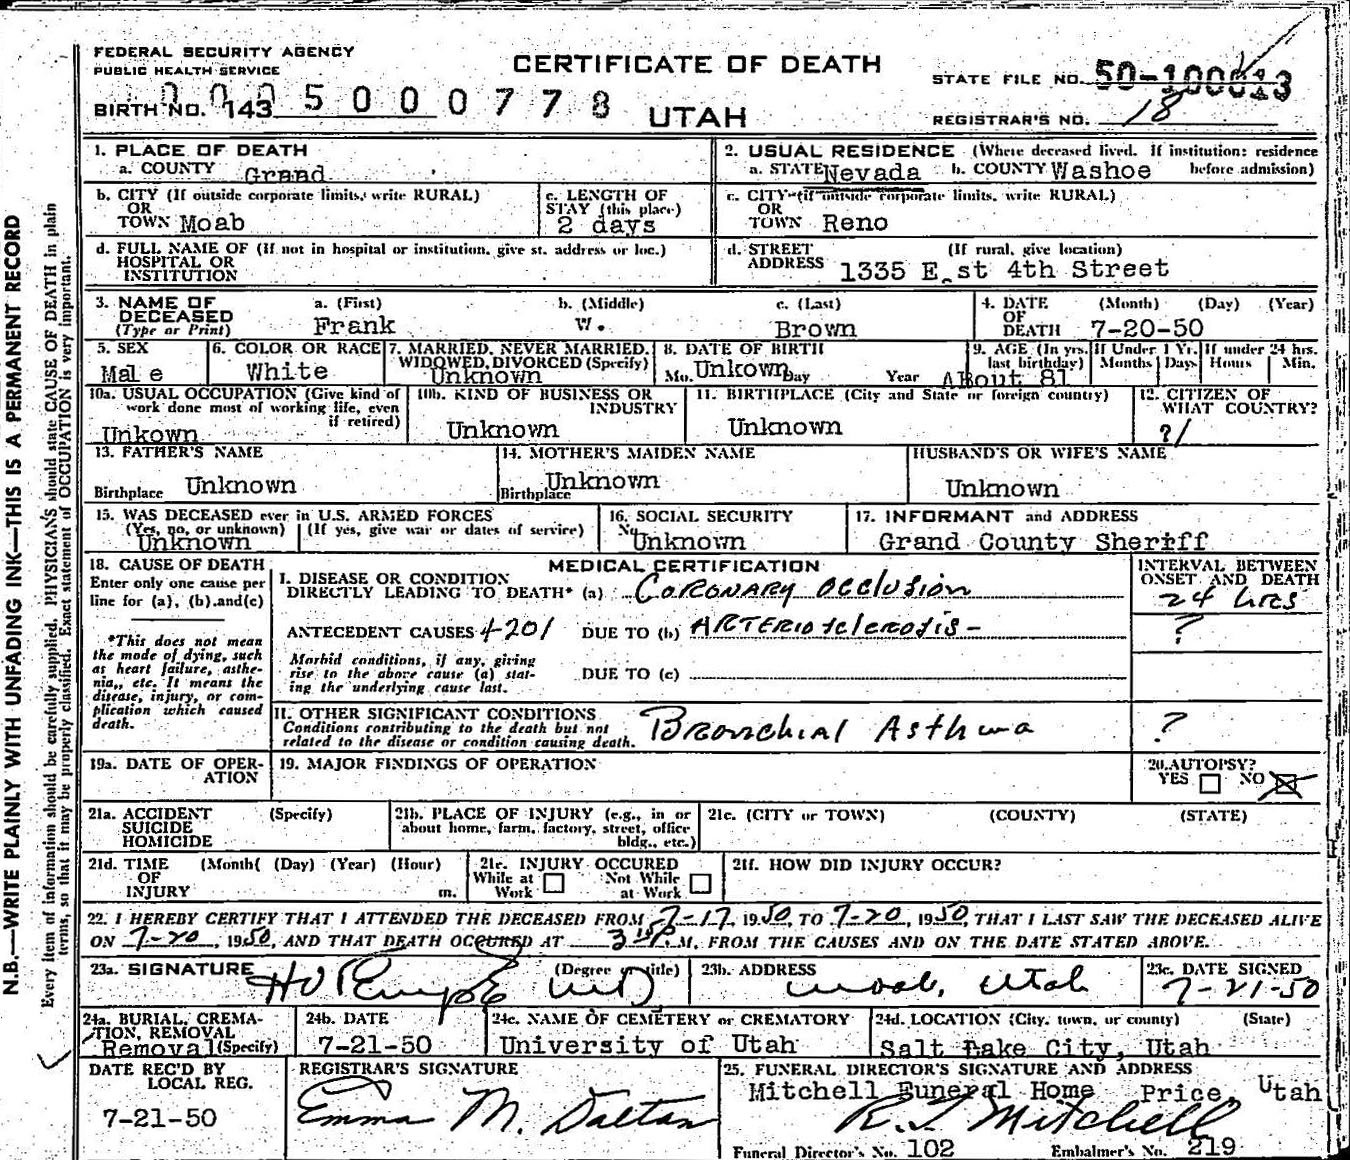 FEDERAL SECURITY AGENCY
PUBLIC HEALTH SERVICE
CERTIFICATE OF DEATH
STATE FILE NO. 50-100613
BIRTH NO. 143 0005000778
UTAH
REGISTRAR'S NO. 18
1. PLACE OF DEATH
a. COUNTY Grand
2. USUAL RESIDENCE (Where deceased lived. If institution: residence before admission)
a. STATE Nevada b. COUNTY Washoe
b. CITY (If outside corporate limits, write RURAL)
OR
TOWN Moab
c. LENGTH OF
STAY (this place)
2 days
c. CITY (if outside corporate limits, write RURAL)
OR
TOWN Reno
d. FULL NAME OF (If not in hospital or institution, give st. address or loc.)
HOSPITAL OR
INSTITUTION
d. STREET (If rural, give location)
ADDRESS 1335 E st 4th Street
3. NAME OF
DECEASED
(Type or Print)
a. (First) b. (Middle) c. (Last)
Frank W. Brown
4. DATE (Month) (Day) (Year)
OF
DEATH 7-20-50
5. SEX
Male
6. COLOR OR RACE
White
7. MARRIED, NEVER MARRIED,
WIDOWED, DIVORCED (Specify)
Unknown
8. DATE OF BIRTH
Mo. Unkown Day Year
9. AGE (In yrs.
last birthday)
About 81
If Under 1 Yr.
Months Days
If under 24 hrs.
Hours Min.
10a. USUAL OCCUPATION (Give kind of
work done most of working life, even
if retired)
Unkown
10b. KIND OF BUSINESS OR
INDUSTRY
Unknown
11. BIRTHPLACE (City and State or foreign country)
Unknown
12. CITIZEN OF
WHAT COUNTRY?
?/
13. FATHER'S NAME
Birthplace Unknown
14. MOTHER'S MAIDEN NAME
Unknown
Birthplace
HUSBAND'S OR WIFE'S NAME
Unknown
15. WAS DECEASED ever in U.S. ARMED FORCES
(Yes, no, or unknown) (If yes, give war or dates of service)
Unknown
16. SOCIAL SECURITY
No. Unknown
17. INFORMANT and ADDRESS
Grand County Sheriff
18. CAUSE OF DEATH
Enter only one cause per
line for (a), (b), and (c)
*This does not mean
the mode of dying, such
as heart failure, asthe-
nia,, etc. It means the
disease, injury, or com-
plication which caused
death.
MEDICAL CERTIFICATION
I. DISEASE OR CONDITION
DIRECTLY LEADING TO DEATH* (a) Coronary Occlusion
ANTECEDENT CAUSES 4201 DUE TO (b) Arteriosclerosis -
Morbid conditions, if any, giving
rise to the above cause (a) stat-
ing the underlying cause last.
DUE TO (c)
INTERVAL BETWEEN
ONSET AND DEATH
24 hrs
?
II. OTHER SIGNIFICANT CONDITIONS
Conditions contributing to the death but not
related to the disease or condition causing death.
Bronchial Asthma
?
19a. DATE OF OPER-
ATION
19. MAJOR FINDINGS OF OPERATION
20. AUTOPSY?
YES NO
21a. ACCIDENT (Specify)
SUICIDE
HOMICIDE
21b. PLACE OF INJURY (e.g., in or
about home, farm, factory, street, office
bldg., etc.)
21c. (CITY or TOWN) (COUNTY) (STATE)
21d. TIME (Month( (Day) (Year) (Hour)
OF
INJURY m.
21e. INJURY OCCURED
While at Work Not While at Work
21f. HOW DID INJURY OCCUR?
22. I HEREBY CERTIFY THAT I ATTENDED THE DECEASED FROM 7-17, 1950, TO 7-20, 1950, THAT I LAST SAW THE DECEASED ALIVE
ON 7-20, 1950, AND THAT DEATH OCCURED AT 3 P. M., FROM THE CAUSES AND ON THE DATE STATED ABOVE.
23a. SIGNATURE (Degree or title)
MD
23b. ADDRESS
Moab, Utah
23c. DATE SIGNED
7-21-50
24a. BURIAL, CREMA-
TION, REMOVAL
Removal (Specify)
24b. DATE
7-21-50
24c. NAME OF CEMETERY or CREMATORY
University of Utah
24d. LOCATION (City, town, or county) (State)
Salt Lake City, Utah
DATE REC'D BY
LOCAL REG.
7-21-50
REGISTRAR'S SIGNATURE
Emma M. Dalton
25. FUNERAL DIRECTOR'S SIGNATURE AND ADDRESS
Mitchell Funeral Home Price, Utah
R. J. Mitchell
Funeral Director's No. 102 Embalmer's No. 219
N.B.—WRITE PLAINLY WITH UNFADING INK—THIS IS A PERMANENT RECORD
Every item of information should be carefully supplied. PHYSICIANS should state CAUSE OF DEATH in plain
terms, so that it may be properly classified. Exact statement of OCCUPATION is very important.